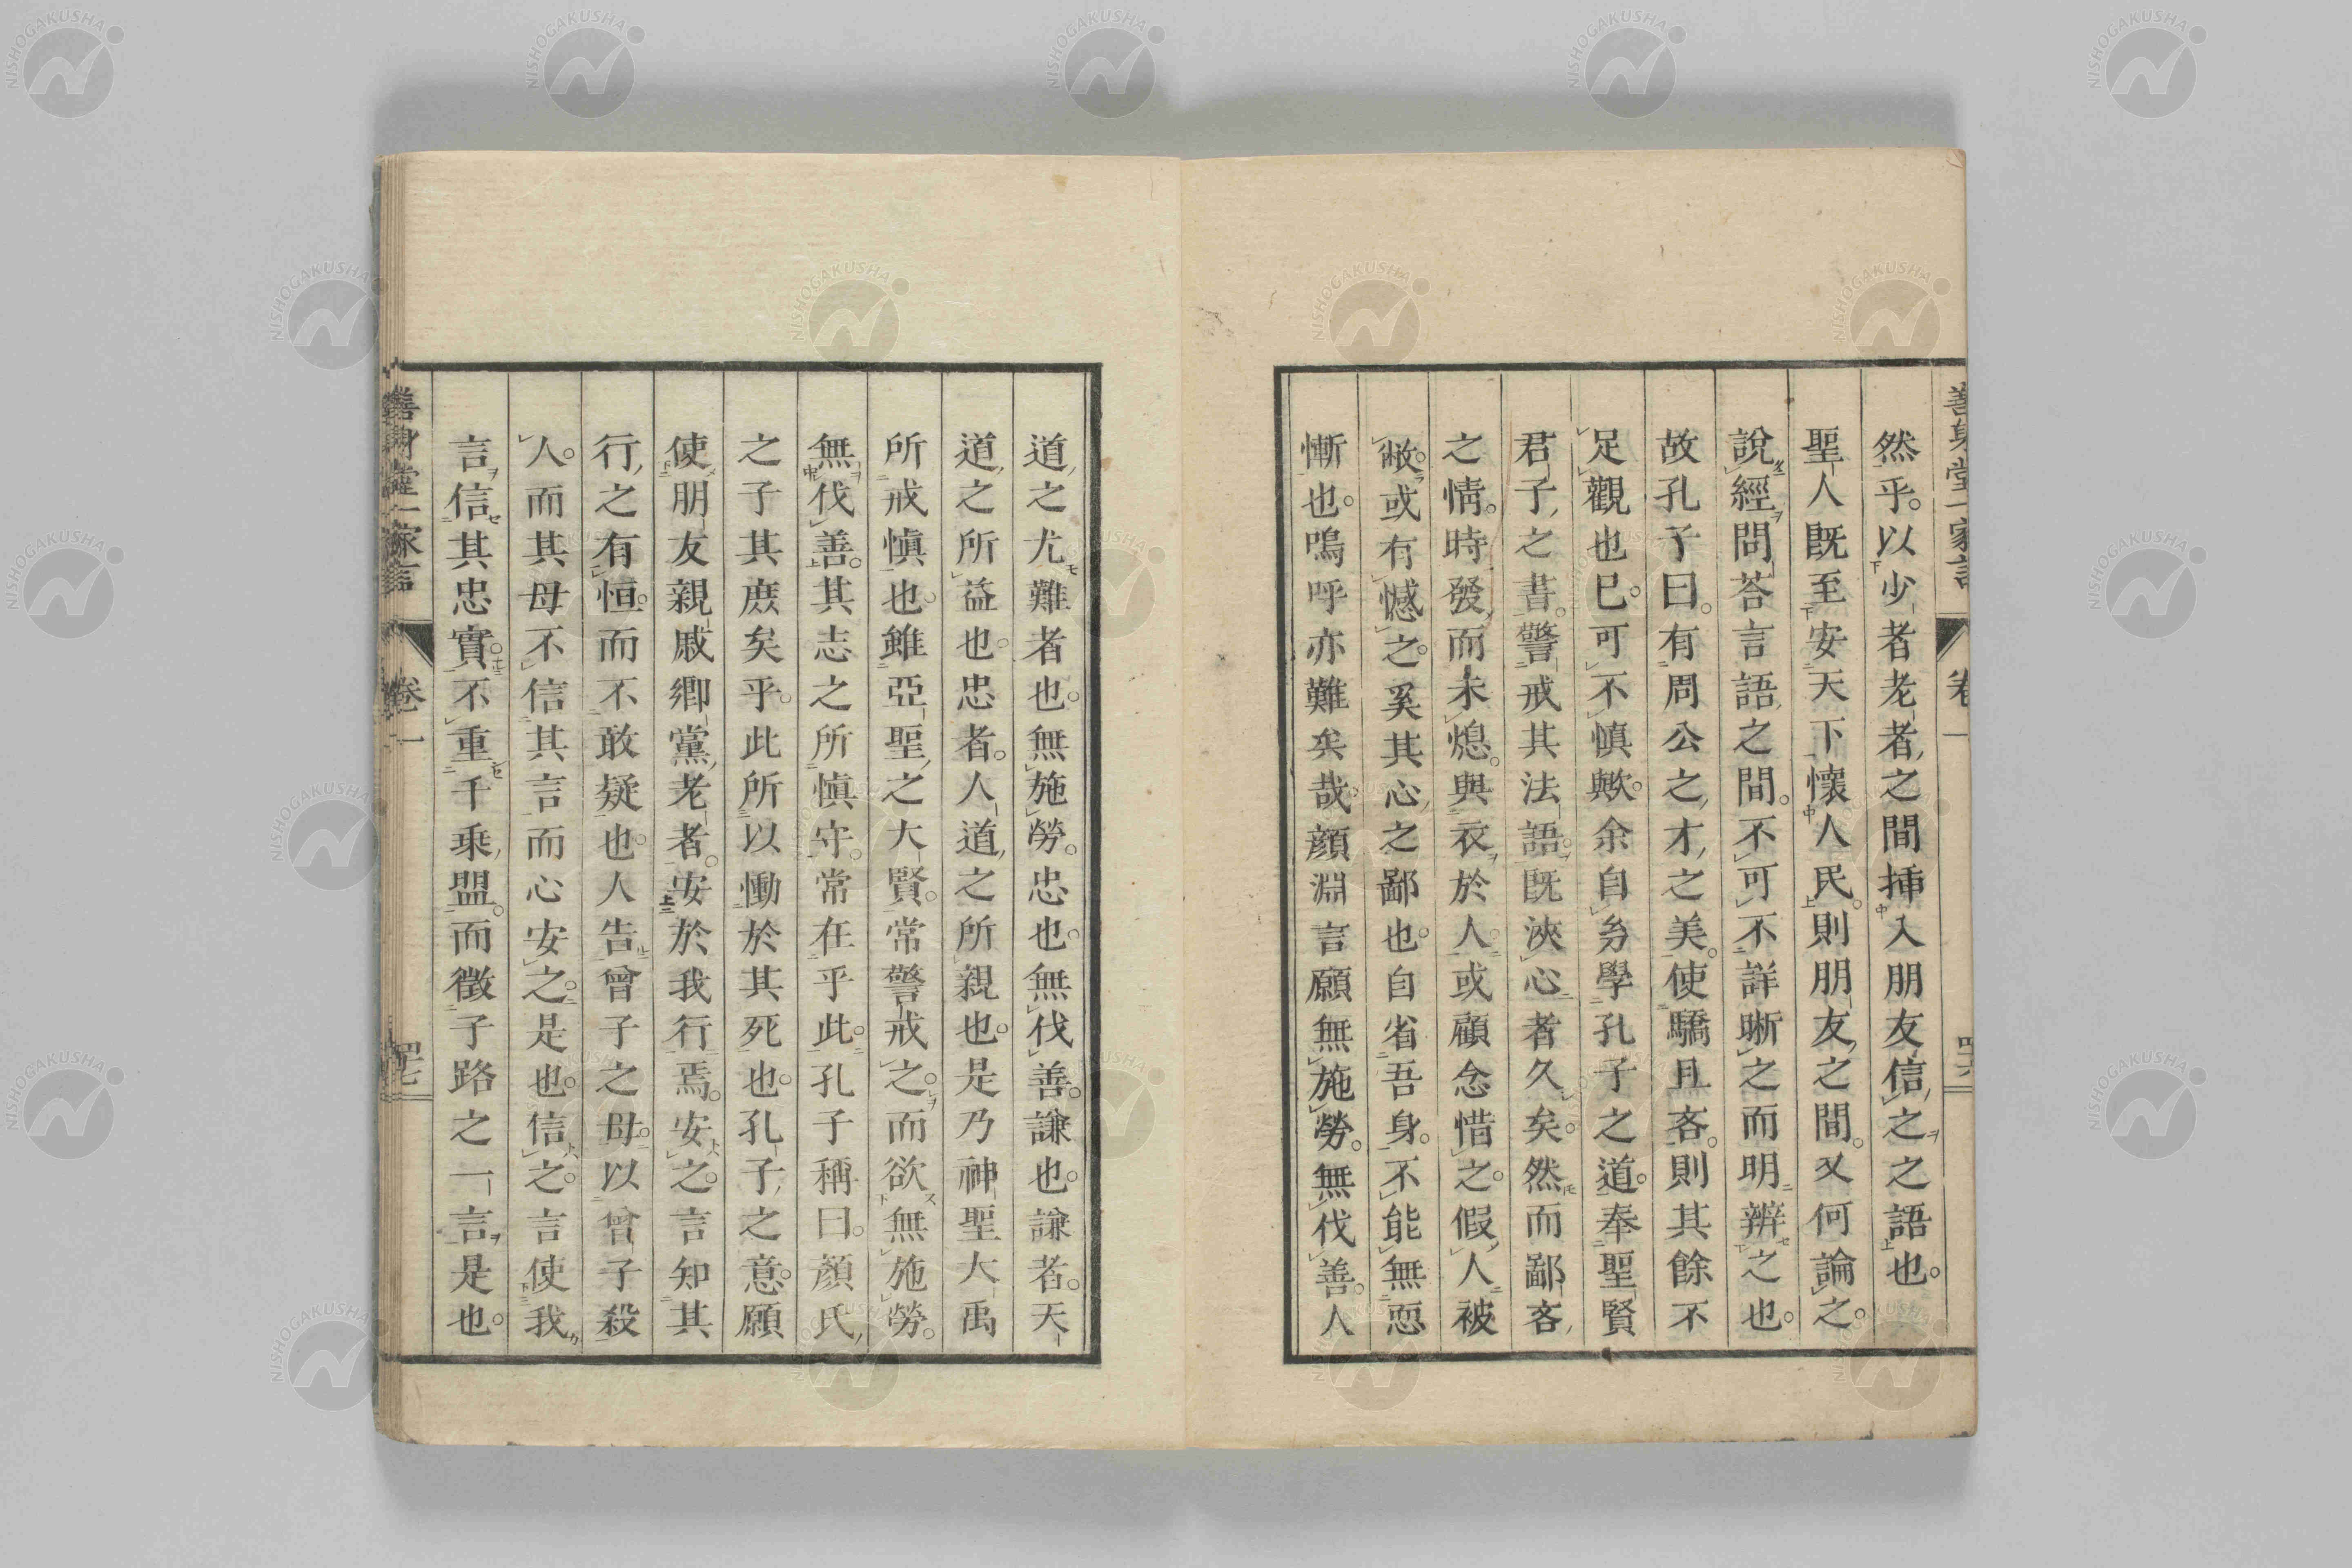 然乎。以少者老者之間挿入朋友信之之語也。
聖人既至安天下懷人民。則朋友之間。又何論之。
說經問荅言語之間。不可不詳晰之而明辨之也。
故孔子曰。有周公之才之美。使驕且吝。則其餘不
足觀也已。可不慎歟。余自㓜學孔子之道。奉聖賢
君子之書。警戒其法語。既浹心者久矣。然而鄙吝
之情。時發而未熄。與衣於人。或顧念惜之。假人被
敝。或有憾之。奚其心之鄙也。自省吾身。不能無恧
慚也。嗚呼亦難矣哉。顏淵言願無施勞。無伐善。人
道之尤難者也。無施勞。忠也。無伐善。謙也。謙者。天
道之所益也。忠者。人道之所親也。是乃神聖大禹
所戒愼也。雖亞聖之大賢。常警戒之。而欲無施勞。
無伐善。其志之所愼守。常在乎此。孔子稱曰。顏氏
之子其庶矣乎。此所以慟於其死也。孔子之意。願
使朋友親戚鄉黨老者。安於我行焉。安之。言知其
行之有恒。而不敢疑也。人告曾子之母。以曾子殺
人。而其母不信其言而心安之。是也。信之。言使我
言信其忠實。不重千乘盟。而徵子路之一言。是也。
善身堂一家言
卷一
四六
善身堂一家言
卷一
四七
NISHOGAKUSHA